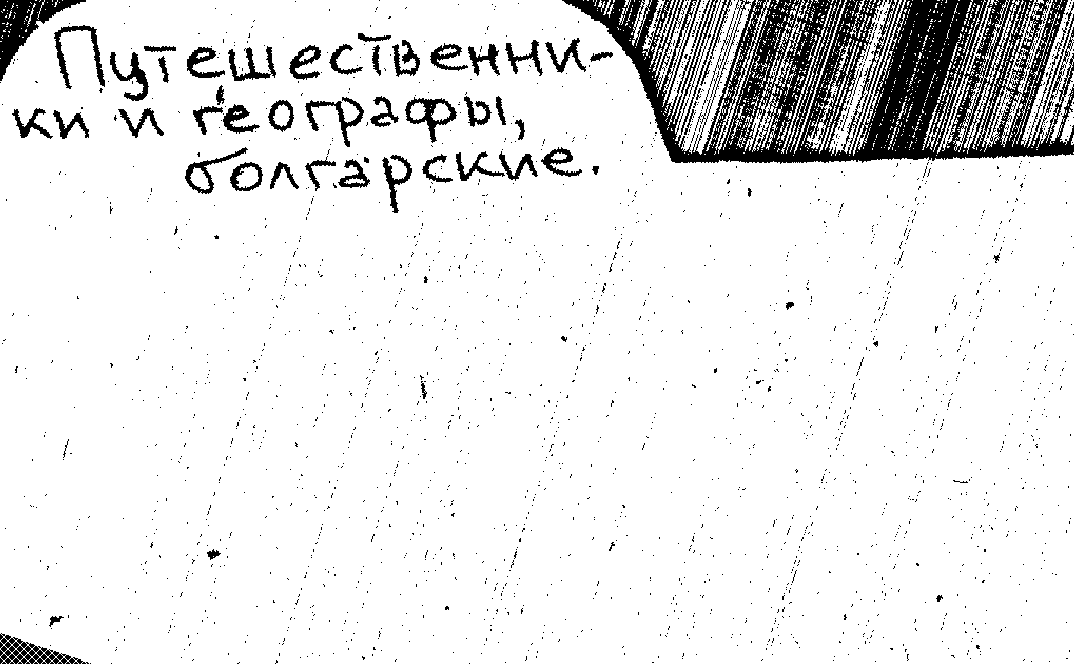 Путешественни-
ки и географы,
болгарские.